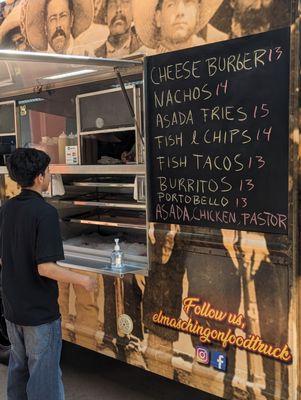 CHEESE BURGER 13
NACHOS 14
ASADA FRIES 15
FISH & CHIPS 14
FISH TACOS 13
BURRITOS 13
PORTOBELLO 13
ASADA, CHICKEN, PASTOR
Follow us,
elmaschingonfoodtruck